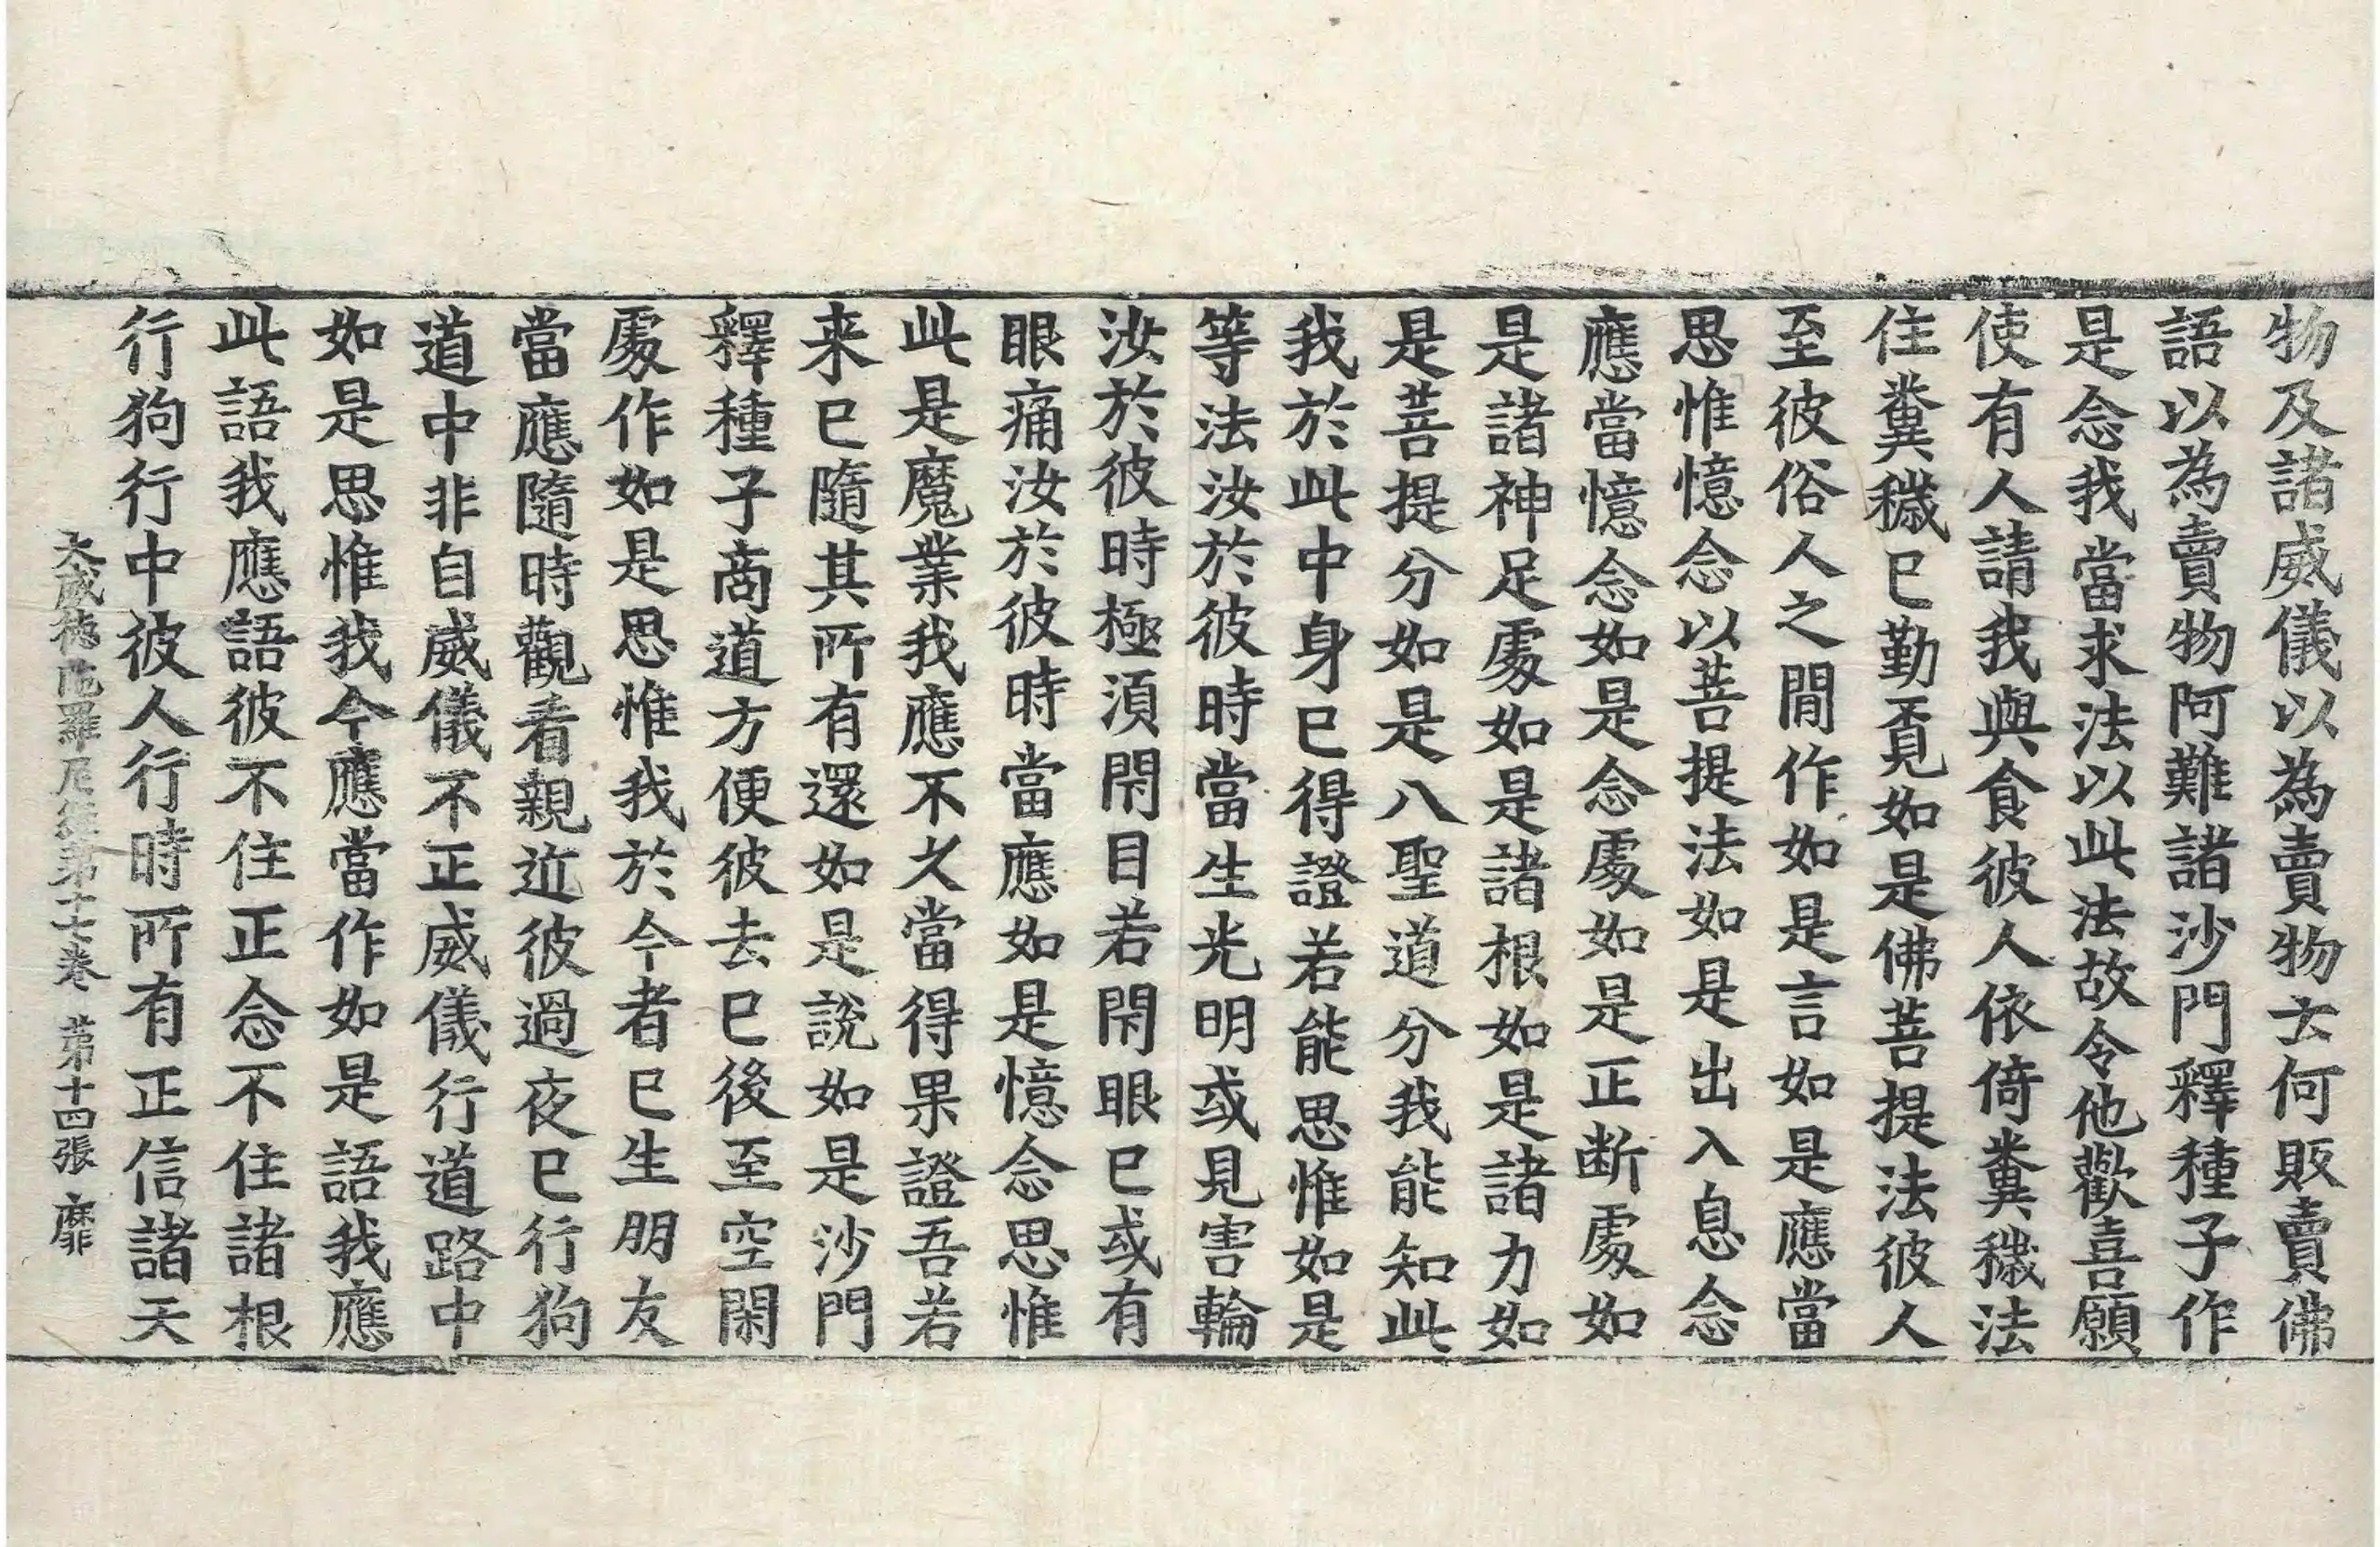 物及諸威儀以為賣物云何販賣佛
語以為賣物阿難諸沙門釋種子作
是念我當求法以此法故令他歡喜願
使有人請我與食彼人依倚糞穢法
住糞穢已勤覓如是佛菩提法彼人
至彼俗人之閒作如是言如是應當
思惟憶念以菩提法如是出入息念
應當憶念如是念處如是正断處如
是諸神足處如是諸根如是諸力如
是菩提分如是八聖道分我能知此
我於此中身已得證若能思惟如是
等法汝於彼時當生光明或見害輪
汝於彼時極湏閇目若閇眼已或有
眼痛汝於彼時當應如是憶念思惟
此是魔業我應不久當得果證吾若
来已隨其所有還如是說如是沙門
釋種子啇道方便彼去已後至空閑
處作如是思惟我於今者已生朋友
當應隨時觀看親近彼過夜已行狗
道中非自威儀不正威儀行道路中
如是思惟我今應當作如是語我應
此語我應語彼不住正念不住諸根
行狗行中彼人行時所有正信諸天
大威德陁羅尼經第十七卷 第十四張 靡